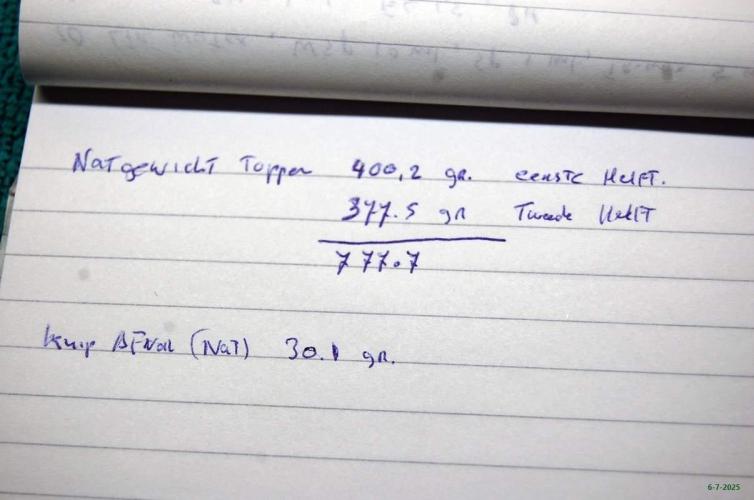 Natgewicht Toppen 400,2 gr. eerste Helft.
377.5 gr Tweede Helft
777.7
Knip Afval (Nat) 30.1 gr.
6-7-2025